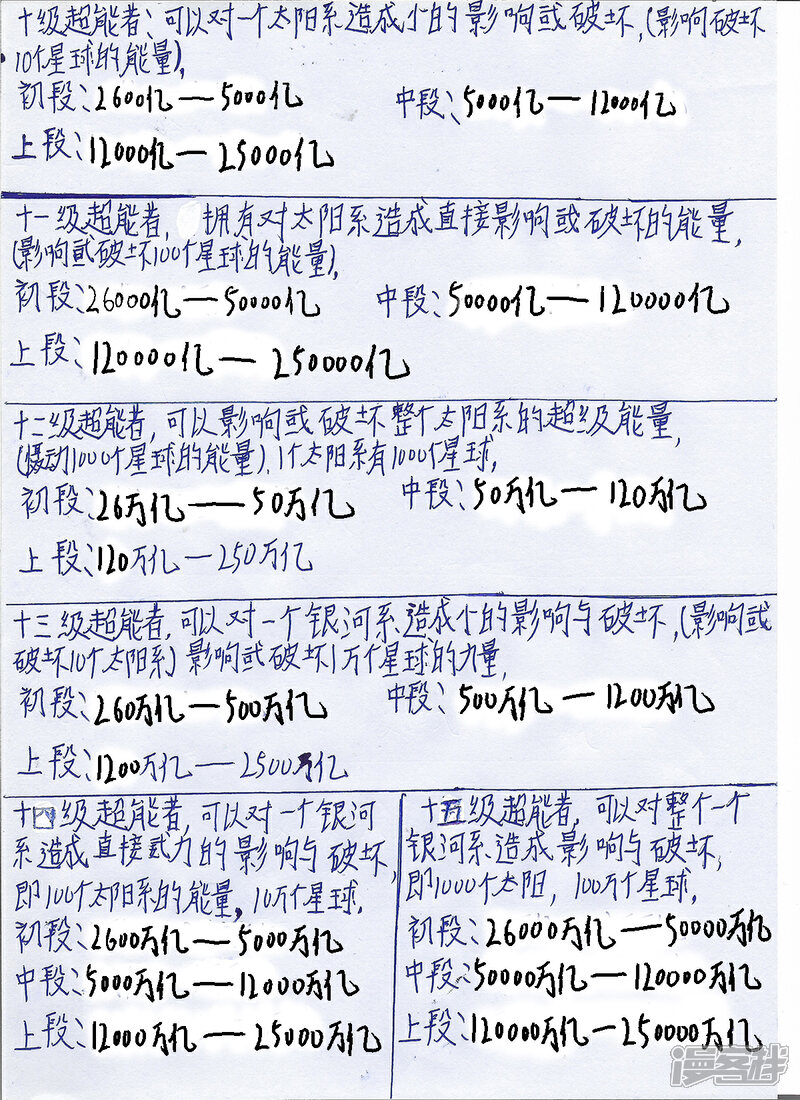 十级超能者、可以对一个太阳系造成小的影响或破坏,(影响破坏
10个星球的能量),
初段、2600亿—5000亿 中段、5000亿—12000亿
上段、12000亿—25000亿
十一级超能者, 拥有对太阳系造成直接影响或破坏的能量,
(影响或破坏100个星球的能量),
初段、26000亿—50000亿 中段、50000亿—120000亿
上段、120000亿—250000亿
十二级超能者,可以影响或破坏整个太阳系的超级能量,
(慑动1000个星球的能量)、1个太阳系有1000个星球,
初段、26万亿—50万亿 中段、50万亿—120万亿
上段、120万亿—250万亿
十三级超能者,可以对一个银河系造成小的影响与破坏,(影响或
破坏10个太阳系)影响或破坏1万个星球的力量,
初段、260万亿—500万亿 中段、500万亿—1200万亿
上段、1200万亿—2500万亿
十四级超能者,可以对一个银河
系造成直接武力的影响与破坏,
即100个太阳系的能量,10万个星球,
初段、2600万亿—5000万亿
中段、5000万亿—12000万亿
上段、12000万亿—25000万亿
十五级超能者,可以对整个一个
银河系造成影响与破坏,
即1000个太阳,100万个星球,
初段、26000万亿—50000万亿
中段、50000万亿—120000万亿
上段、120000万亿—250000万亿
漫客栈